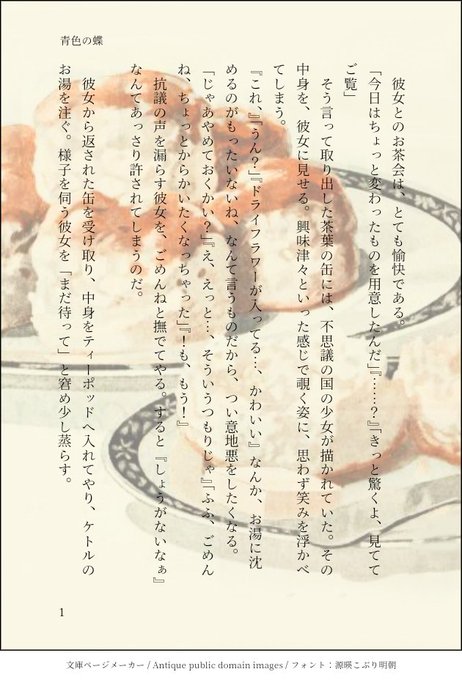 青色の蝶
彼女とのお茶会は、とても愉快である。
「今日はちょっと変わったものを用意したんだ」『……？』「きっと驚くよ、見てて
ご覧」
そう言って取り出した茶葉の缶には、不思議の国の少女が描かれていた。その
中身を、彼女に見せる。興味津々といった感じで覗く姿に、思わず笑みを浮かべ
てしまう。
『これ、』「うん？」『ドライフラワーが入ってる…、かわいい』なんか、お湯に沈
めるのがもったいないね、なんて言うものだから、つい意地悪をしたくなる。
「じゃあやめておくかい？」『え、えっと…、そういうつもりじゃ』「ふふ、ごめん
ね、ちょっとからかいたくなっちゃった」『！も、もう！』
抗議の声を漏らす彼女を、ごめんねと撫でてやる。すると『しょうがないなぁ』
なんてあっさり許されてしまうのだ。
彼女から返された缶を受け取り、中身をティーポッドへ入れてやり、ケトルの
お湯を注ぐ。様子を伺う彼女を「まだ待って」と窘め少し蒸らす。
1
文庫ページメーカー / Antique public domain images / フォント：源暎こぶり明朝